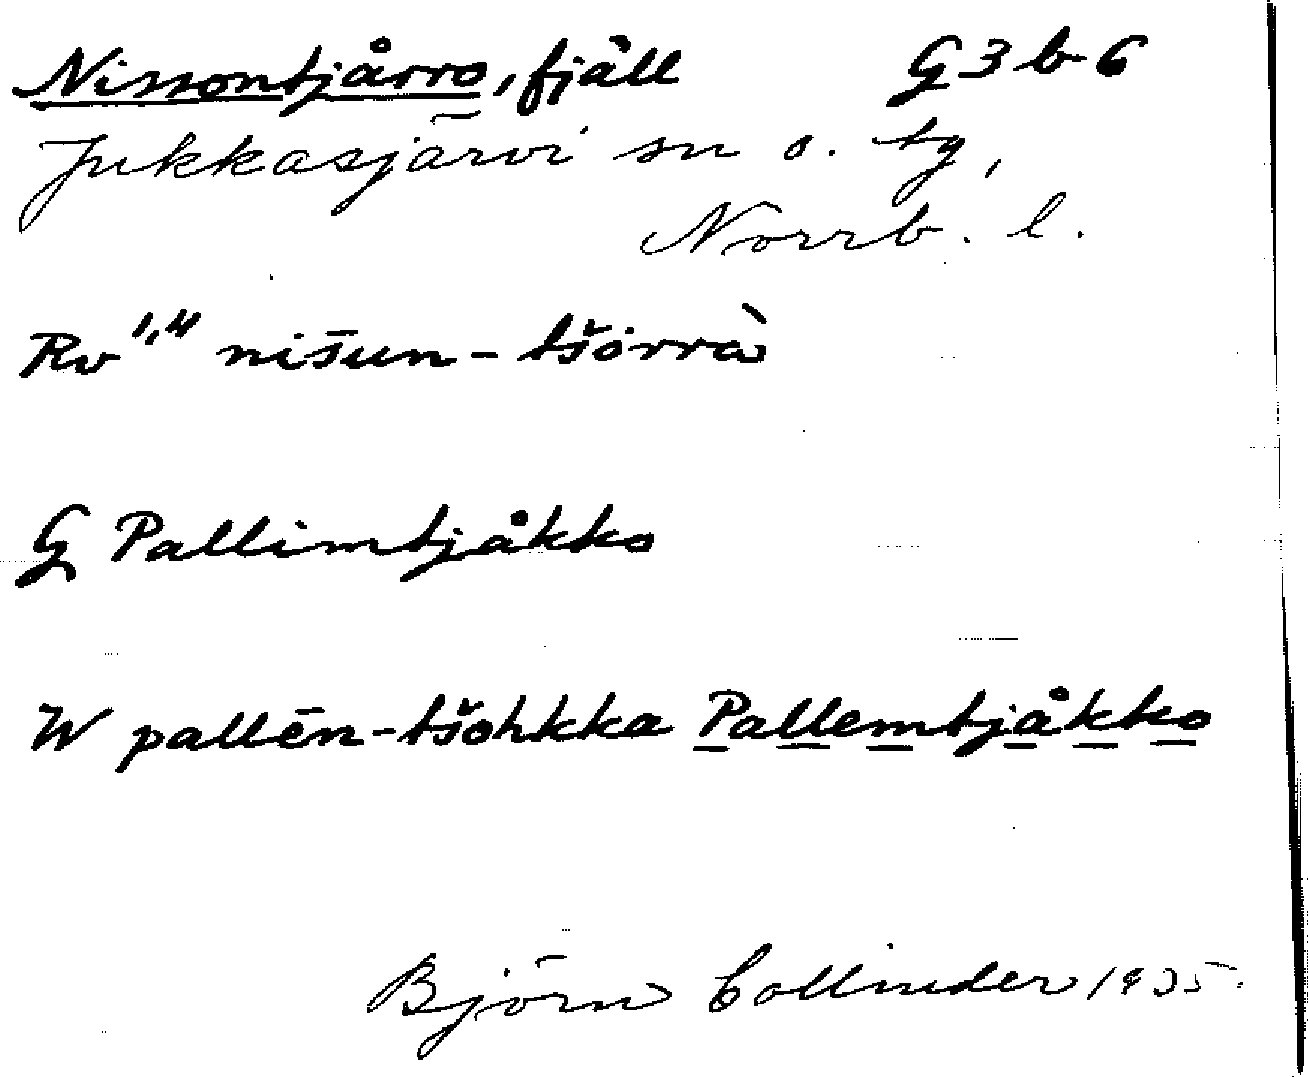 Nissontjårro, fjäll G3b6
Jukkasjärvi sn o. tg,
Norrb. l.
Rv 1,4 nišun-tšȯrrà
G Pallimtjåkko
W pallēn-tšȯhkka Pallemtjåkko
Björn Collinder 1935.